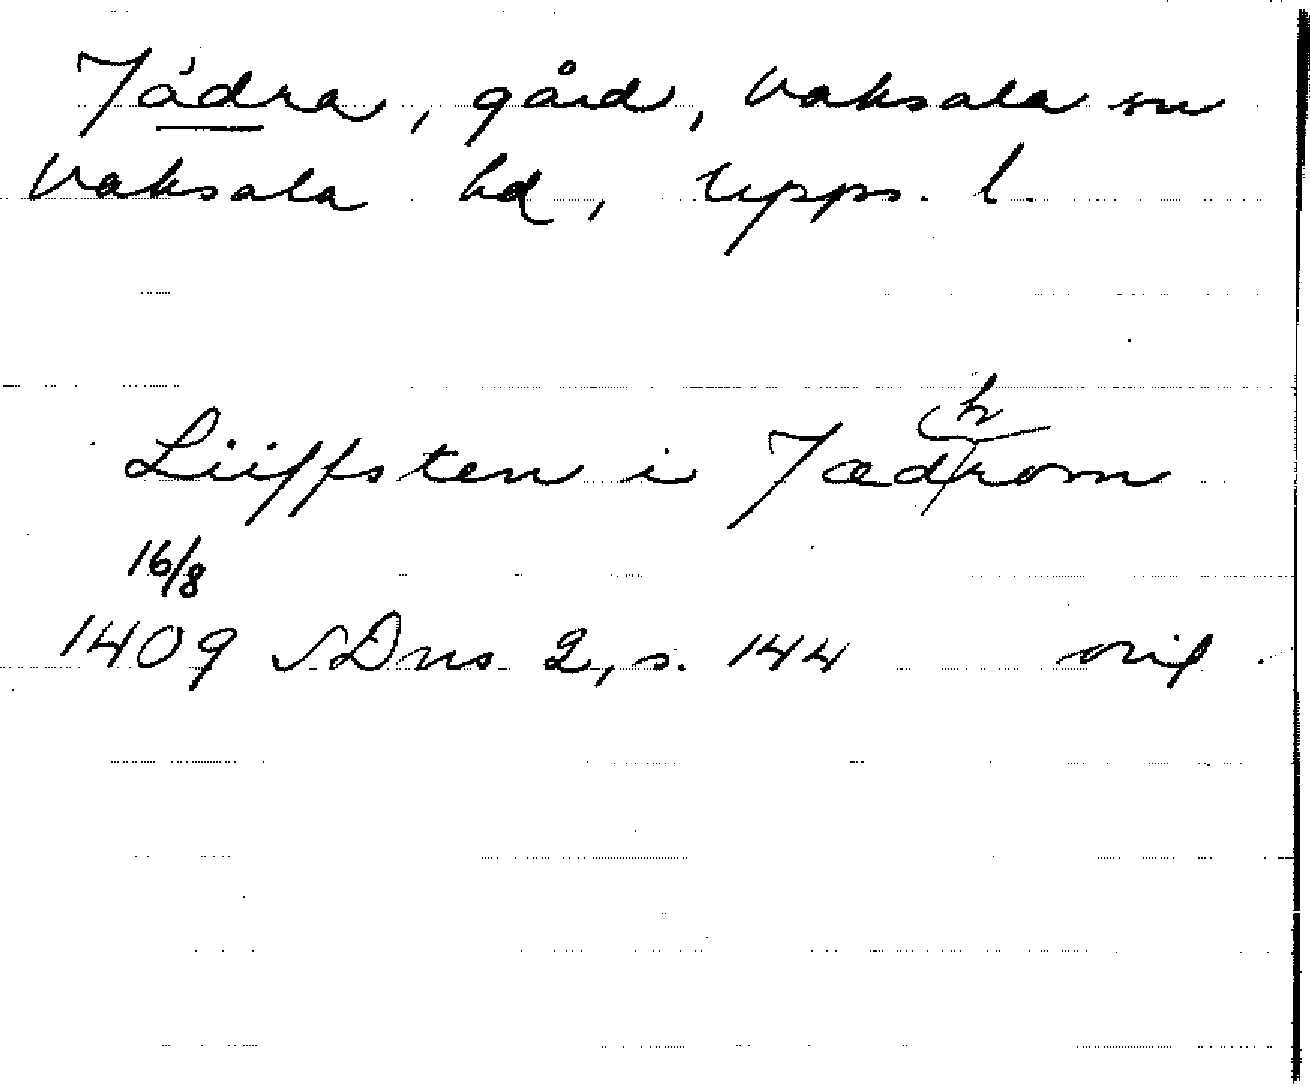 Jädra, gård, Vaksala sn
Vaksala hd, Upps. l.
Liiffsten i Jædhrom
16/8
1409 SDns 2, s. 144 orig.